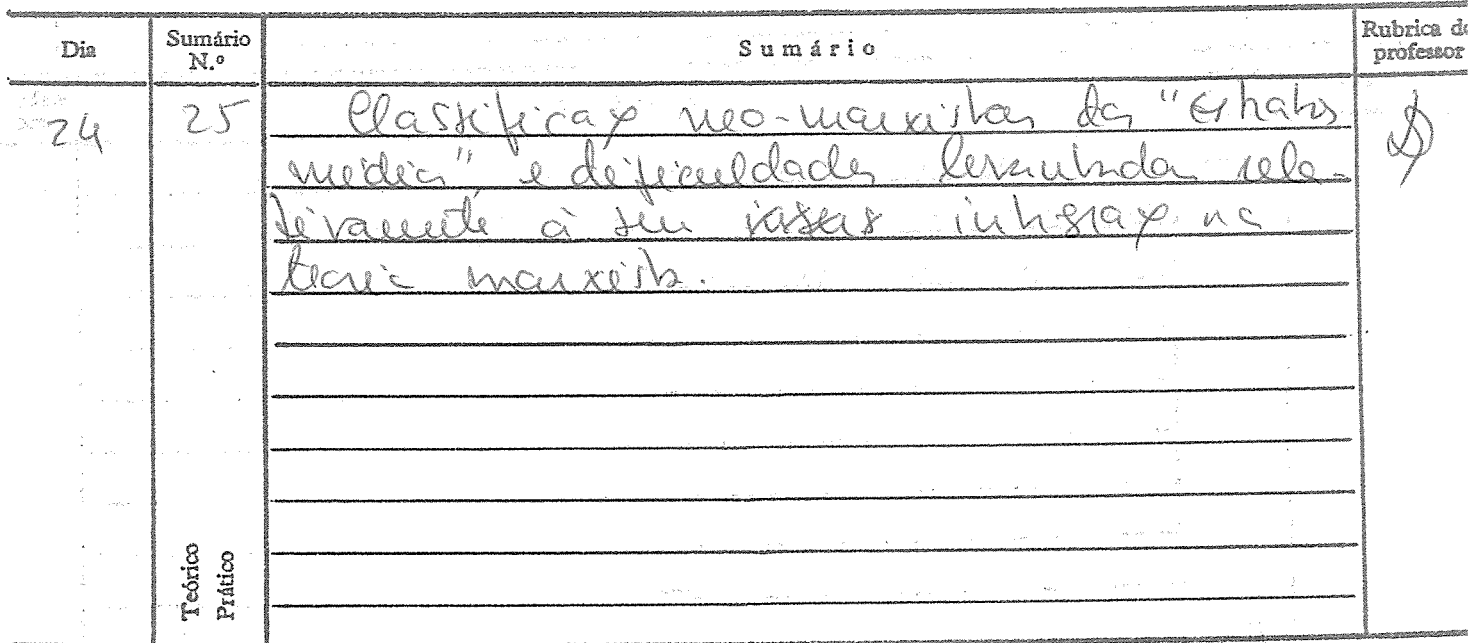 Dia
Sumário N.º
Sumário
Rubrica do professor
24
25
Classificaç neo-marxistas dos "estratos
médios" e dificuldades levantadas rela-
tivamente à sua integraç na
teoria marxista.
Teórico
Prático